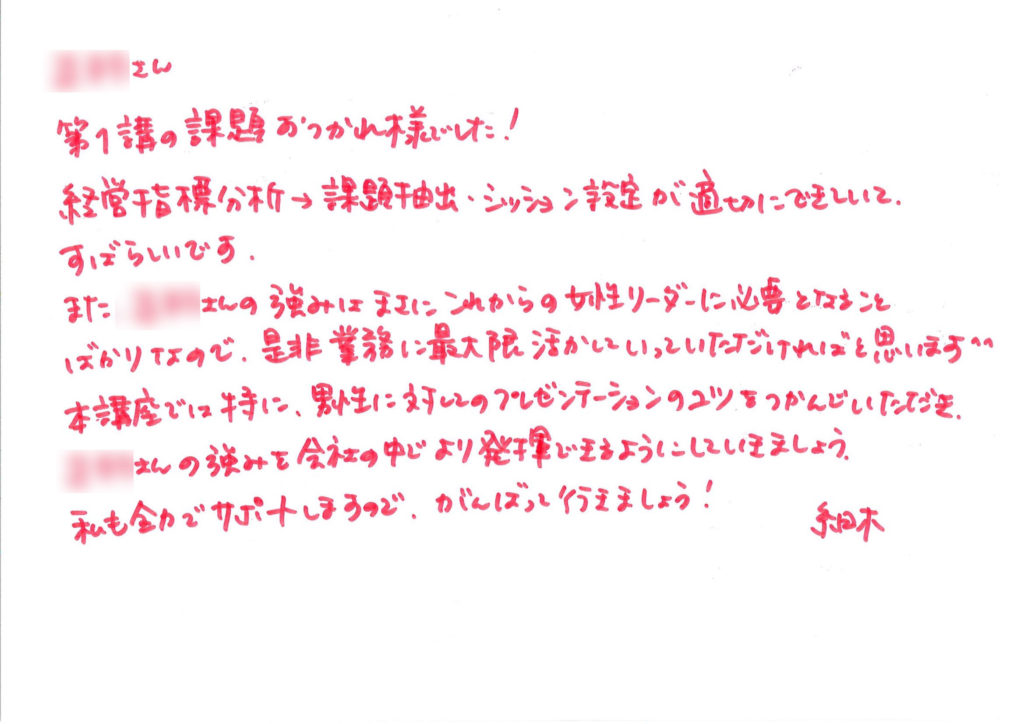 さん
第1講の課題おつかれ様でした!
経営指標分析→課題抽出・ミッション設定が適切にできていて、
すばらしいです。
また さんの強みはまさにこれからの女性リーダーに必要となること
ばかりなので、是非業務に最大限活かしていっていただければと思います^^
本講座では特に、男性に対してのプレゼンテーションのコツをつかんでいただき、
さんの強みを会社の中でより発揮できるようにしていきましょう。
私も全力でサポートしますので、がんばって行きましょう!
細木